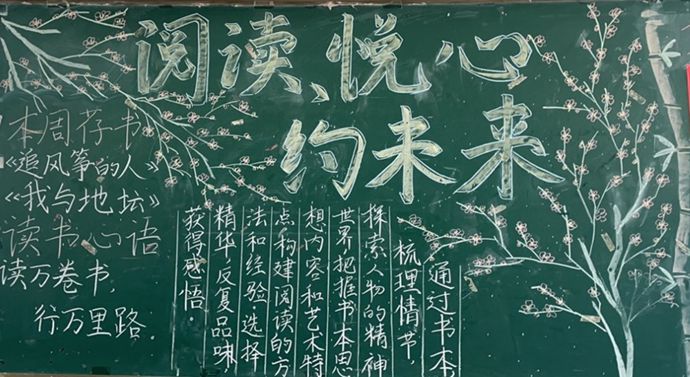 阅读、悦心
约未来
本周荐书
《追风筝的人》
《我与地坛》
读书心语
读万卷书,
行万里路.
通过书本
梳理情节,
探索人物的精神
世界把握书本思
想内容和艺术特
点,构建阅读的方
法和经验选择
精华反复品味,
获得感悟